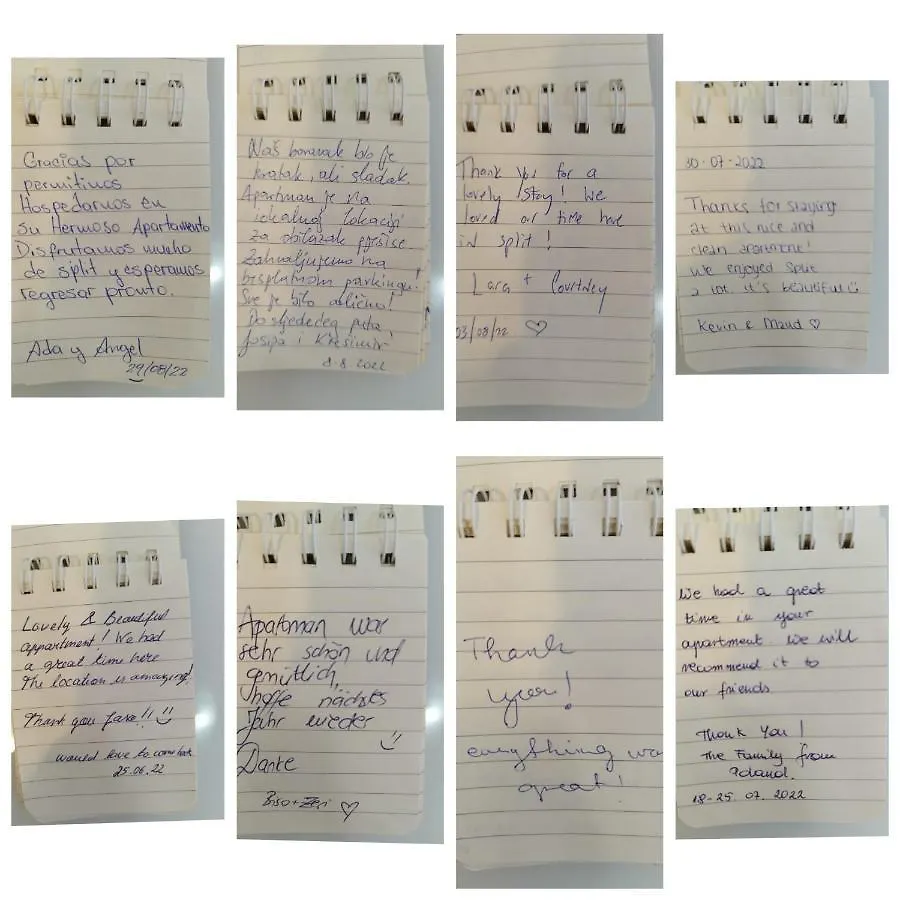 Gracias por
permitirnos
Hospedarnos en
su Hermoso Apartamento
Disfrutamos mucho
de split y esperamos
regresar pronto.
Ada y Angel
29/08/22
Naš boravak bio je
kratak, ali sladak.
Apartman je na
idealnoj lokaciji
za obilazak pješice.
Zahvaljujemo na
besplatnom parkingu!
Sve je bilo odlično!
Do sljedećeg puta,
Josipa i Krešimir
8.8.2022
Thank you for a
lovely stay! We
loved our time here
in split!
Lara + Courtney
03/08/22 ♡
30-07-2022
Thanks for staying
at this nice and
clean apartment!
We enjoyed Split
a lot. it's beautiful
Kevin & Maud ♡
Lovely & Beautiful
appartment! We had
a great time here
The location is amazing!
Thank you !!
would love to come back
25.06.22
Apartman war
sehr schön und
gemütlich,
hoffe nächstes
Jahr wieder
Danke
♡
Thank
you!
everything wa
great!
We had a great
time in your
apartment. We will
recommend it to
our friends
Thank You!
The Family from
Poland.
18-25.07.2022